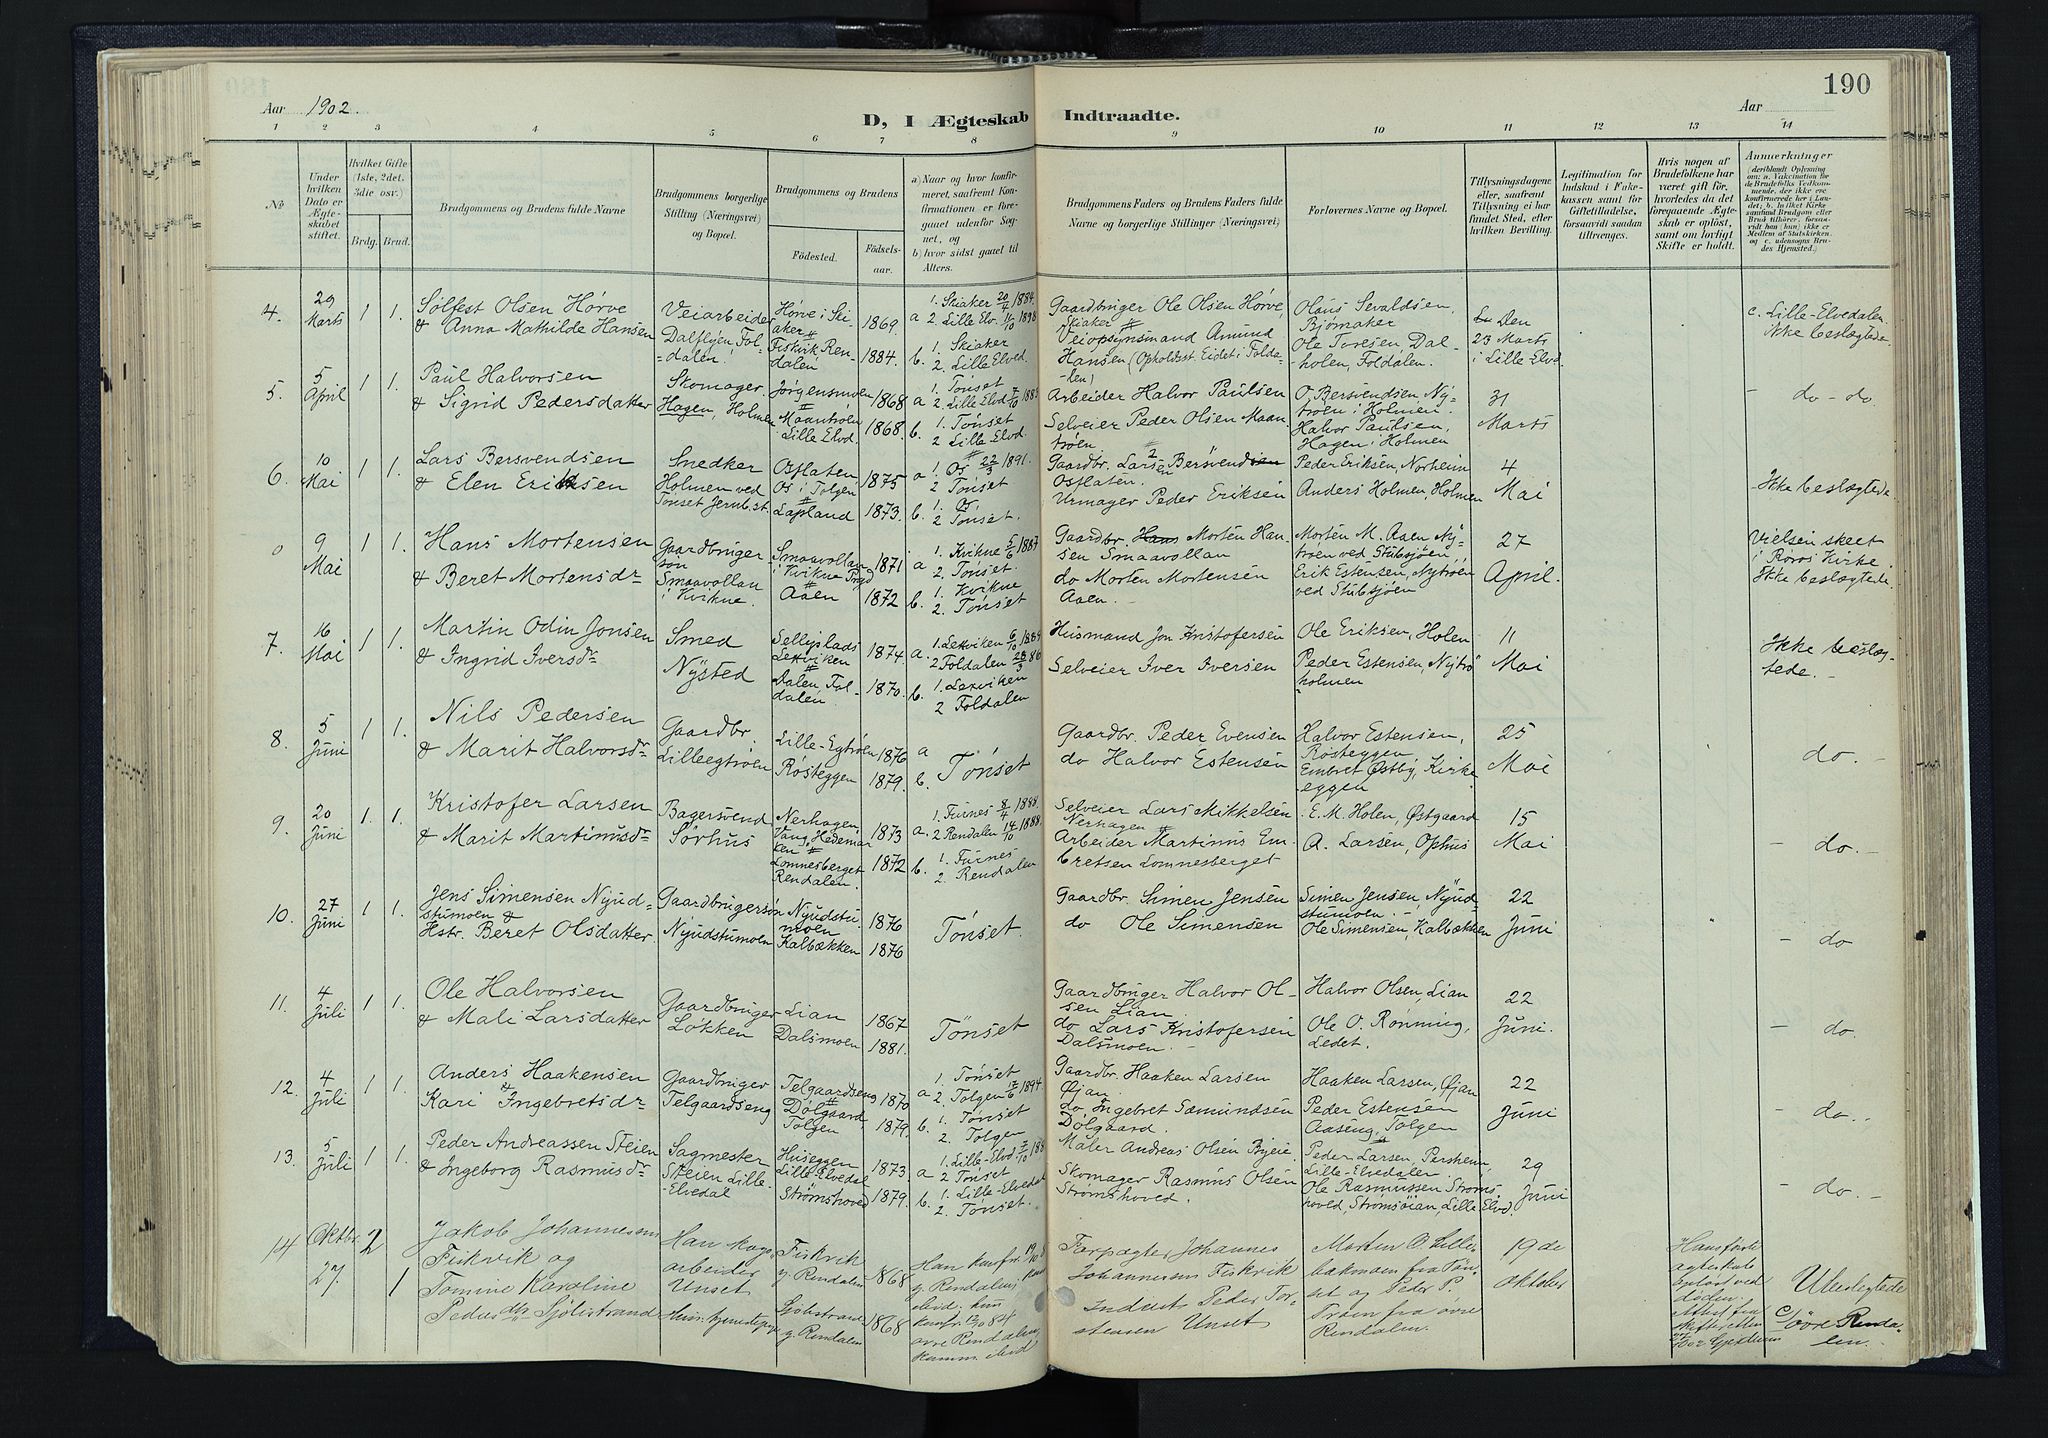 190
Aar 1902.
D, I Ægteskab Indtraadte.
Aar
1 2 3 4 5 6 7 8 9 10 11 12 13 14
No
Under hvilken Dato er Ægteskabet stiftet.
Hvilket Gifte (1ste, 2det, 3die osv.)
Brdg. Brud.
Brudgommens og Brudens fulde Navne
Brudgommens borgerlige Stilling (Næringsvei) og Bopæl.
Brudgommens og Brudens
Fødested.
Fødselsaar.
a) Naar og hvor konfirmeret, saafremt Konfirmationen er foregaaet udenfor Sognet, og
b) hvor sidst gaaet til Alters.
Brudgommens Faders og Brudens Faders fulde Navne og borgerlige Stillinger (Næringsvei)
Forlovernes Navne og Bopæl.
Tillysningsdagene eller, saafremt Tillysning ei har fundet Sted, efter hvilken Bevilling.
Legitimation for Indskud i Fakekassen samt for Giftetilladelse, forsaavidt saadan tiltrænges.
Hvis nogen af Brudefolkene har været gift før, hvorledes da det foregaaende Ægteskab er opløst, samt om lovligt Skifte er holdt.
Anmerkninger (deriblandt Oplysning om: a. Vakcination for de Brudefolks Vedkommende, der ikke ere konfirmerede her i Landet; b. hvilket Kirkesamfund Brudgom eller Brud tilhører, forsaavidt han (hun) ikke er Medlem af Statskirken. og c. udensogns Brudes Hjemsted.)
4. 29 Marts 1 1.
Sølfest Olsen Hørve
& Anna Mathilde Hansen
Veiarbeider
Dalflÿen, Fol-
dalen
Hørve i Ski-
aker
Fiskvik Ren-
dalen
1869.
1884
a 1. Skiaker 20/4 1884.
2. Lille Elv.
b. 1. Skiaker
2. Lille Elved.
Gaardbruger Ole Olsen Hørve,
Skiaker
Veiopsynsmand Amund
Hansen (Opholdsst. Eidet i Folda-
len)
Olaus Sevaldsen
Bjørnaker
Ole Toresen Dal-
holen, Foldalen.
Den
23 Marts
i Lille-Elvd.
c. Lille-Elvedalen.
Ikke beslægtede
5. 5 April 1 1.
Paul Halvorsen
& Sigrid Pedersdatter
Skomager.
Hagen, Holmen
Jørgensmoen
Maantrøen
Lille Elvd.
1868
1868.
a 1. Tønset
2. Lille Elvd
b. 1. Tønset
2 Lille Elvd.
Arbeider Halvor Paulsen
Selveier Peder Olsen Maan
trøen
O. Bersvendsen Ny-
trøen i Holmen.
Halvor Paulsen,
Hagen i Holmen
31
Marts
- do - do.
6. 10 Mai 1 1.
Lars Bersvendsen
& Elen Eriksen
Snedker
Holmen ved
Tønset Jernb.st.
Osflaten
Os i Tolgen
Lapland
1875
1873.
a 1. Os 22/3 1891.
2 Tønset
b. 1. Os
2 Tønset.
Gaardbr. Larsen Bersvendsen
Osflaten.
Urmager Peder Eriksen
Peder Eriksen, Norheim
Anders Holmen, Holmen
4
Mai
Ikke beslægtede
0 9 Mai 1 1.
Hans Mortensen
& Beret Mortensdr
Gaardbruger
søn
Smaavollan
i Kvikne.
Smaavollan
i Kvikne Prgd
Aaen
1871
1872
a 1. Kvikne 5/6 1887
2. Tønset.
b. 1. Kvikne
2. Tønset
Gaardbr. Hans Morten Han
sen Smaavollan
do Morten Mortensen
Aaen.
Morten M. Aaen Ny-
trøen ved Stubsjøen
Erik Estensen, Nytrøen
ved Stubsjøen
27
April.
Vielsen skeet
i Røros Kirke.
Ikke beslægtede
7. 16 Mai 1 1.
Martin Odin Jonsen
& Ingrid Iversdr
Smed
Nysted
Leksviken
Dalen, Fol-
dalen
1874
1870.
a. 1. Leksviken
2. Foldalen
b. 1. Leksviken
2 Foldalen
Husmand Jon Kristofersen
Selveier Iver Iversen
Ole Eriksen, Holen
Peder Estensen, Nytrø
holmen
11
Mai
Ikke beslæg-
tede. -
8. 5 Juni 1 1.
Nils Pedersen
& Marit Halvorsdr
Gaardbr.
Lilleegtrøen
Lille-Egtrøen
Røsteggen
1876
1879.
a
b. Tønset
Gaardbr. Peder Evensen
do Halvor Estensen
Halvor Estensen,
Røsteggen
Embret Østby, Kirke
eggen
25
Mai
do. -
9. 20 Juni 1. 1.
Kristofer Larsen
& Marit Martinusdr
Bagersvend
Sørhus
Nerhagen,
Vang, Hedemar
ken
Lomnesberget
Rendalen.
1873
1872
a. 1. Furnes 8/4 1888.
2 Rendalen 14/10 1888.
b. 1. Furnes
2. Rendalen
Selveier Lars Mikkelsen
Nerhagen
Arbeider Martinus Em-
bretsen Lomnesberget
E. M. Holen, Østgaard
A. Larsen, Ophus
15
Mai
- do. -
10. 27 Juni 1 1.
Jens Simensen Nyud-
stumoen &
Hstr. Beret Olsdatter.
Gaardbrugersøn
Nyudstumoen
Nyudstu-
moen
Kalbækken
1876
1876
Tønset.
Gaardbr. Simen Jensen
do Ole Simensen
Simen Jensen, Nyud-
stumoen. -
Ole Simensen, Kalbækken
22
Juni
- do
11. 4 Juli 1 1.
Ole Halvorsen
& Mali Larsdatter
Gaardbruger
Løkken
Lian
Dalsmoen
1867
1881.
Tønset
Gaardbruger Halvor Ol-
sen Lian
do Lars Kristofersen
Dalsmoen. -
Halvor Olsen, Lian
Ole O. Rønning,
Ledet.
22
Juni.
- do.
12. 4 Juli 1 1.
Anders Haakensen
&
Kari Ingebretsdr
Gaardbruger
Telgaardseng
Telgaardseng
Dølgaard
Tolgen
1870
1879.
a 1. Tønset
2. Tolgen 17/6 1894
b. 1. Tønset
2. Tolgen
Gaardbr. Haaken Larsen
Øjan.
do. Ingebret Sæmundsen
Dølgaard.
Haaken Larsen, Øjan
Peder Estensen
Aaseng, Tolgen
22
Juni
- do. -
13. 5 Juli 1 1.
Peder Andreassen Steien
& Ingeborg Rasmusdr
Sagmester
Steien Lille-
Elvedal
Huseggen
Lille Elvedal
Strømshoved
1873
1879.
a 1. Lille-Elvd
2 Tønset
b. 1. Lille-Elvedal
2. Tønset.
Maler Andreas Olsen
Skomager Rasmus Olsen
Strømshoved.
Peder Larsen, Persheim,
Lille-Elvedalen
Ole Rasmussen Strøms-
hoved, Strømsøian, Lille Elvd.
29
Juni
- do. -
14 Oktbr. 27. 2 1
Jakob Johannessen
Fiskvik og
Tomine Karoline
Pedersdtr Sjølistrand
Han skogs-
arbeider
Unset
Fiskvik
y. Rendalen
y. Rendalen
1868
1868
Han konfr.
y. Rendalen,
hun
konfr.
øvre Rendalen
Forpagter Johannes
Johannessen Fiskvik
Inderst Peder Tor-
stensen Unset
Morten O. Lille-
bakmoen fra Tøn-
set og Peder P.
Troen fra øvre
Rendalen.
19de
oktober
Hans første
ægteskab
opløst ved
døden.
Attest fra
skifteretten
Ubeslegtede
c/ Øvre Renda-
len.